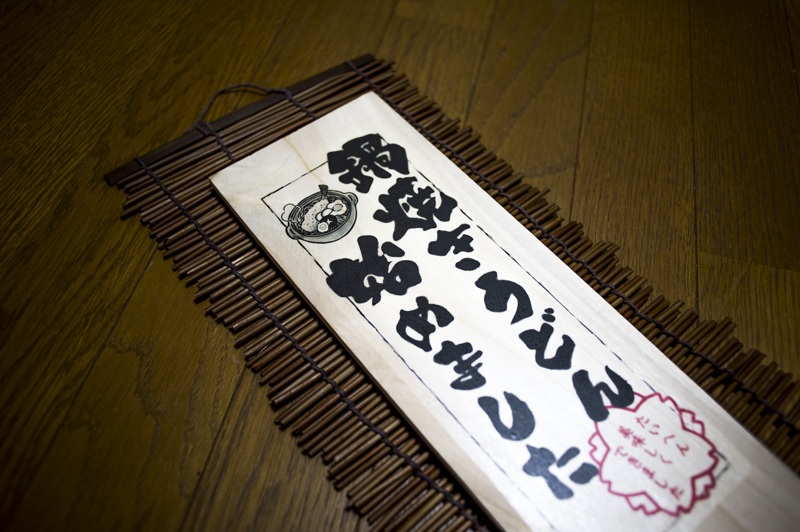 鍋焼きうどん
始めました
たいへん
美味しく
できました